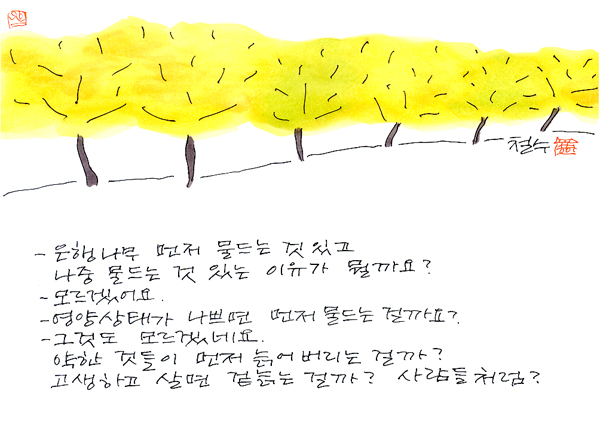 철수
- 은행나무 먼저 물드는 것 있고
나중 물드는 것 있는 이유가 뭘까요?
- 모르겠어요.
- 영양상태가 나쁘면 먼저 물드는 걸까요?
- 그것도 모르겠네요.
약한 것들이 먼저 늙어버리는 걸까?
고생하고 살면 겉늙는 걸까? 사람들처럼?